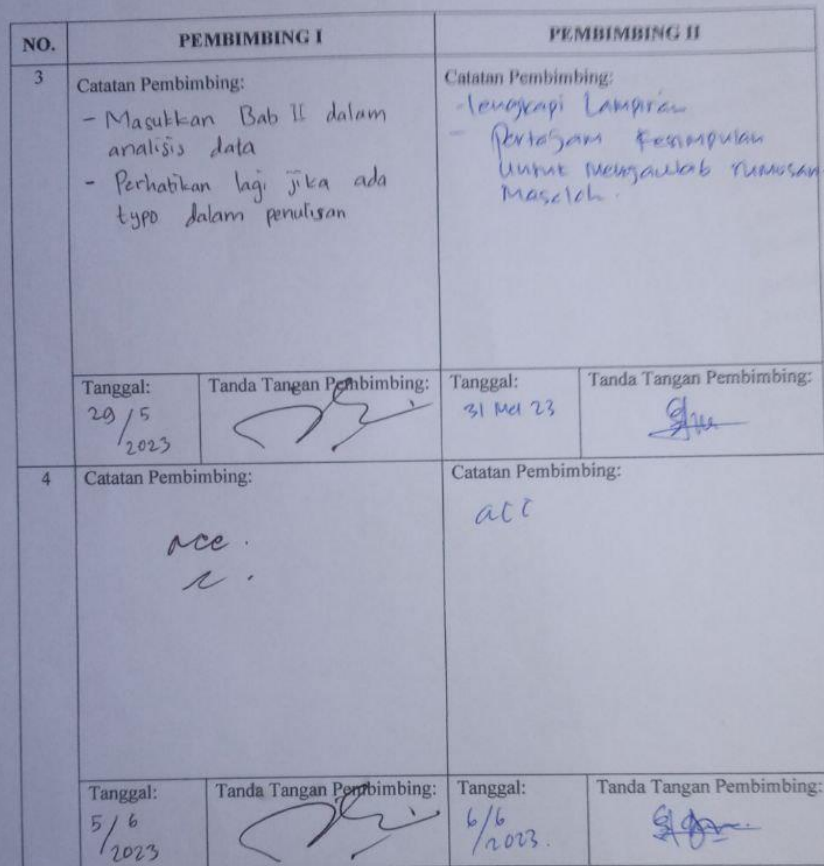 NO.
PEMBIMBING I
PEMBIMBING II
3
Catatan Pembimbing:
- Masukkan Bab II dalam
analisis data
- Perhatikan lagi jika ada
typo dalam penulisan
Catatan Pembimbing:
- lengkapi Lampiran
- Pertajam Kesimpulan
Untuk Menjawab rumusan
Masalah.
Tanggal:
29/5
2023
Tanda Tangan Pembimbing:
Tanggal:
31 Mei 23
Tanda Tangan Pembimbing:
4
Catatan Pembimbing:
acc.
Catatan Pembimbing:
acc
Tanggal:
5/6
2023
Tanda Tangan Pembimbing:
Tanggal:
6/6
2023.
Tanda Tangan Pembimbing: